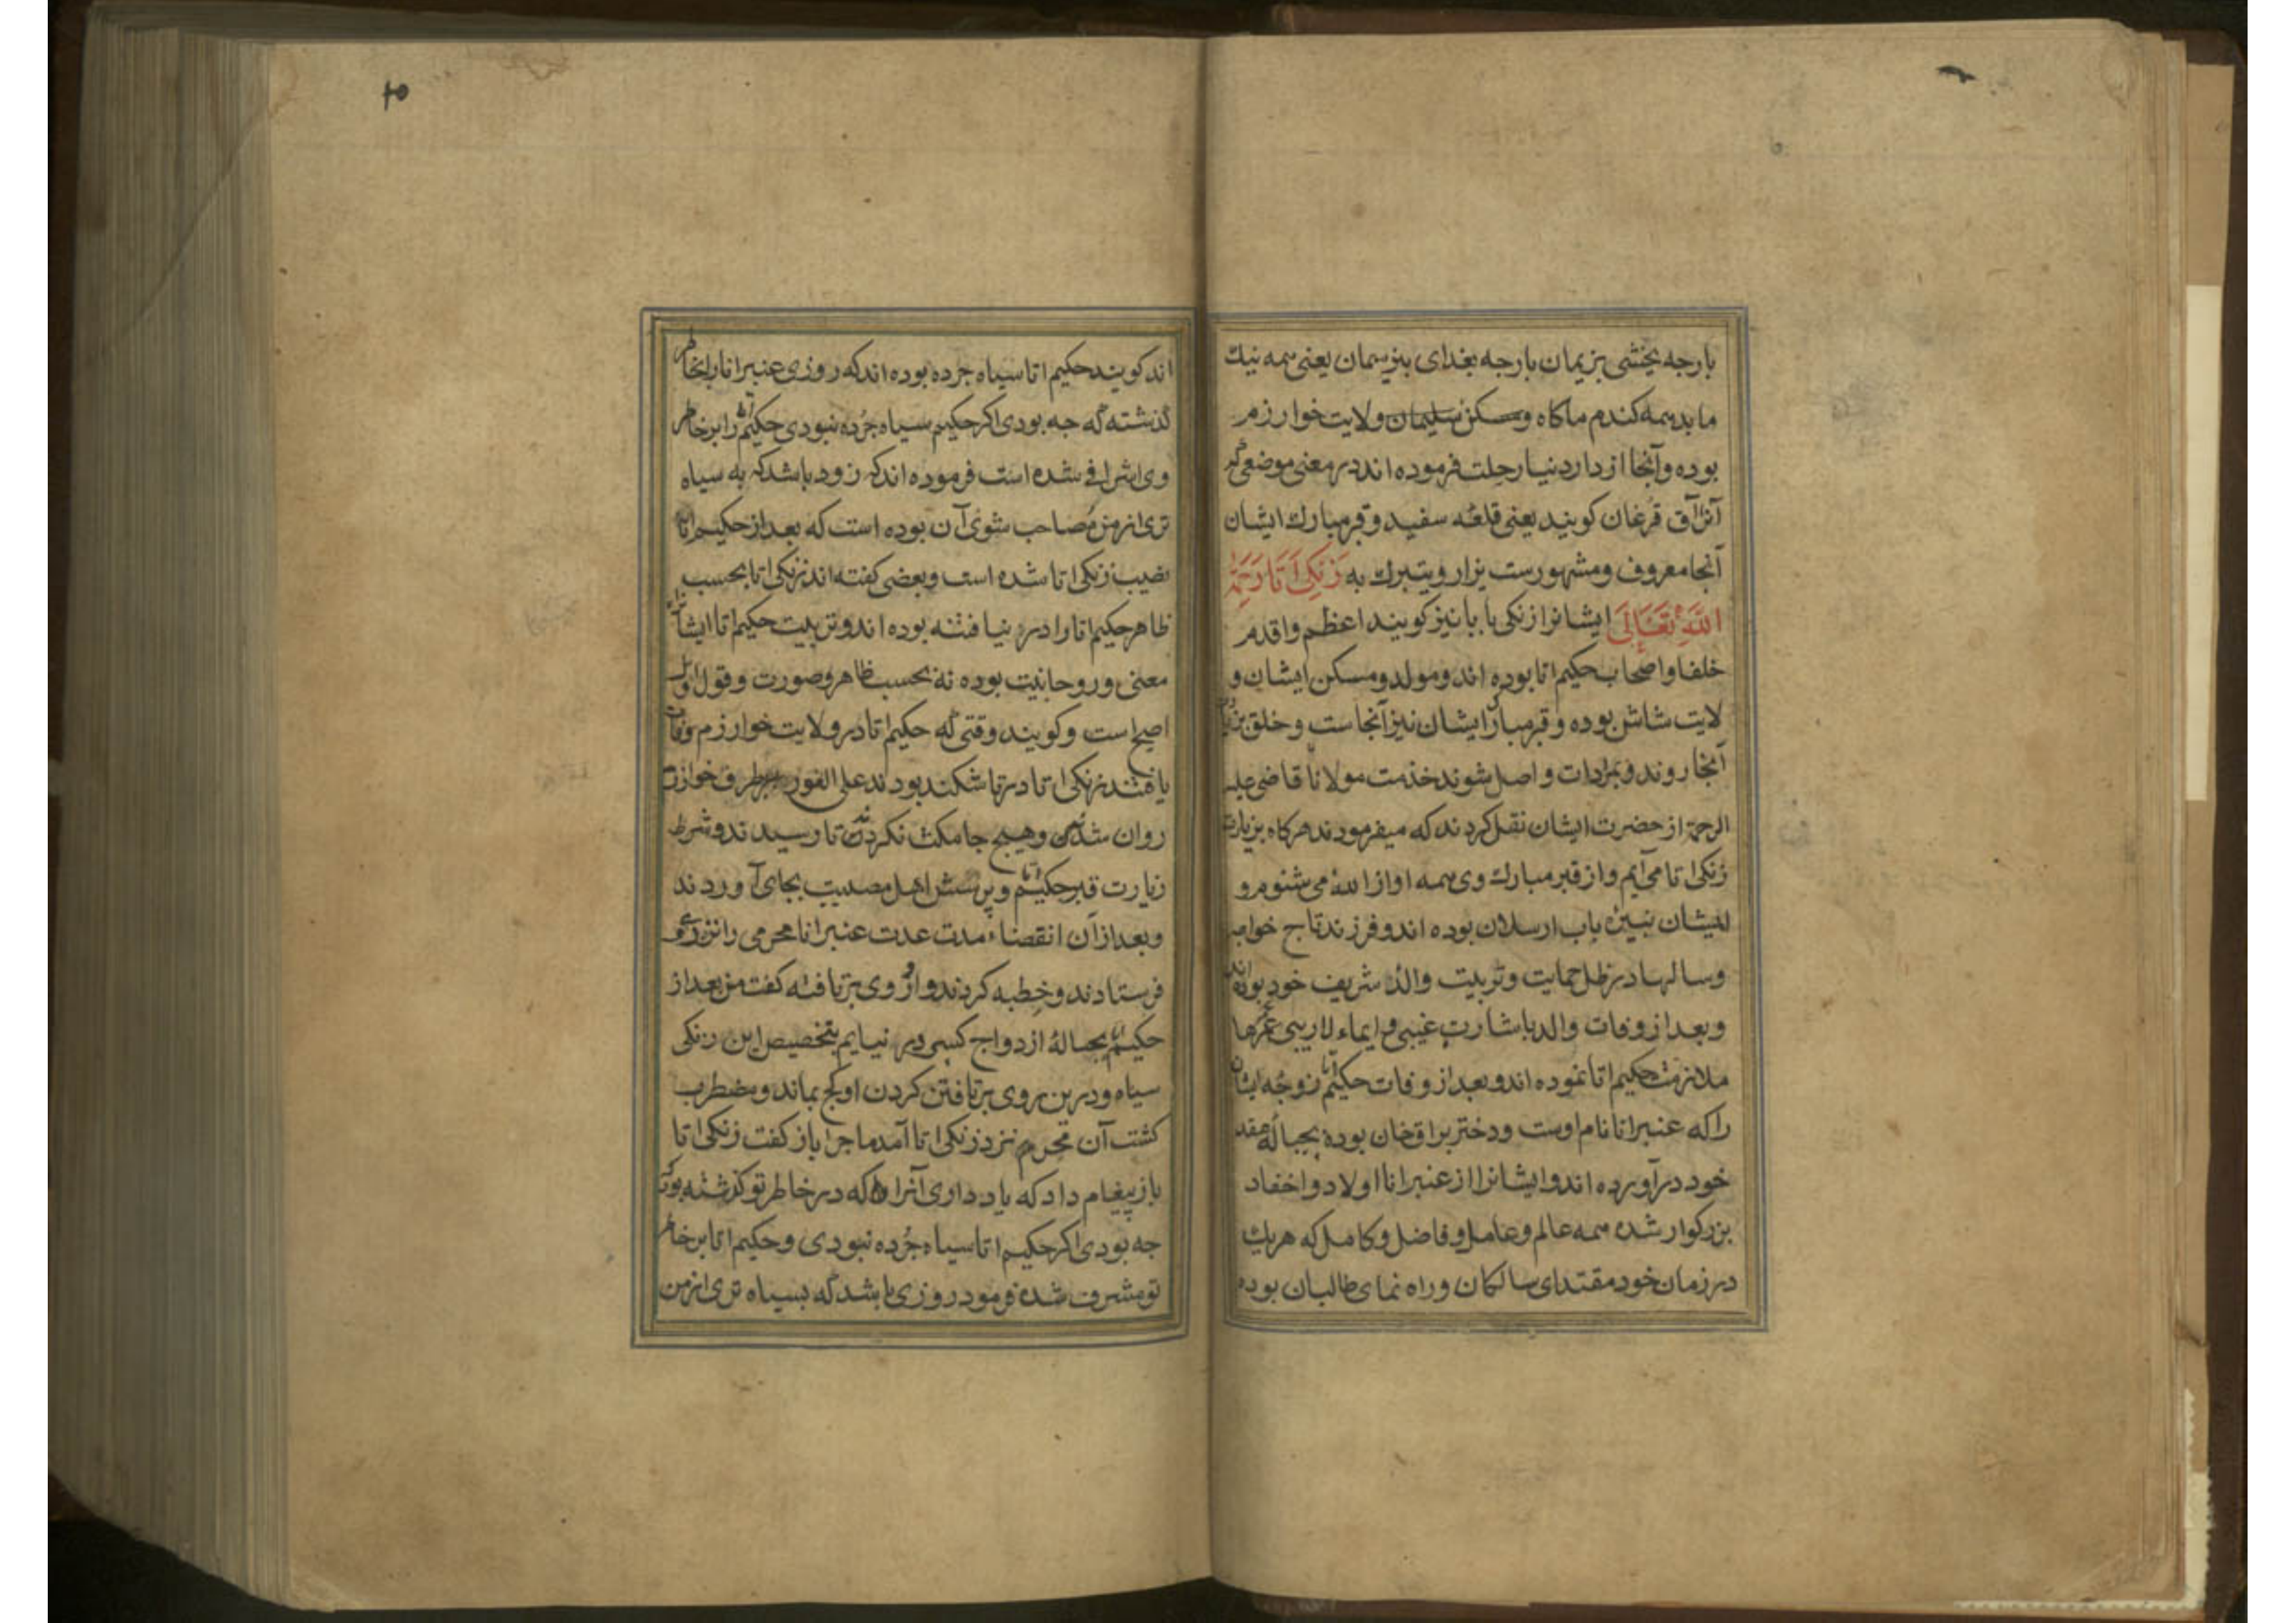 بارجه یخشی بزیمان بارجه بغدای بیز سمان یعنی همه نیک
ما بد همه کندم ما کاه و مسکن سلیمان ولایت خوارزم
بوده و آنجا از دار دنیا رحلت فرموده اند در معنی موضعی که
آنرا آق قُرغان کویند یعنی قلعهٔ سفید و قبر مبارک ایشان
آنجا معروف و مشهورست یزار و یتبرک به زَنکی اَتا رَحمَهُ
اللّٰه تَعَالَی ایشانرا زنکی بابا نیز کویند اعظم و اقدم
خلفا و اصحاب حکیم اتا بوده اند و مولد و مسکن ایشان و
لایت شاش بوده و قبر مبارک ایشان نیز آنجاست و خلق بزیارت
آنجا روند و بمرادات واصل شوند خذمت مولانا قاضی علیه
الرحمة از حضرت ایشان نقل کردند که میفرمودند هرکاه بزیارت
زنکی اتا می آیم و از قبر مبارک وی همه اواز الله می شنوم و
ایشان نبیرهٔ باب ارسلان بوده اند و فرزند تاج خواجه
و سالها در ظل حمایت و تربیت والد شریف خود بوده اند
و بعد از وفات والد باشارت غیبی و ایماء لاریبی عمرها
ملازمت حکیم اتا نموده اند و بعد از وفات حکیم اتا زوجه ایشان
را که عنبر انا نام اوست و دختر براق خان بوده بحبالهٔ عقد
خود در آورده اند و ایشانرا از عنبر انا اولاد و احفاد
بزرکوار شده همه عالم و عامل و فاضل و کامل که هریک
در زمان خود مقتدای سالکان و راه نمای طالبان بوده
اند کویند حکیم اتا سیاه جرده بوده اند که روزی عنبر انا را بخاطر
کذشته که جه بودی اکر حکیم سیاه جُرده نبودی حکیم اتا را بر خاطر
وی اشرافی شده است فرموده اند که زود باشد که به سیاه
تری از من مُصاحب شوی آن بوده است که بعد از حکیم اتا
نصیب زنکی اتا شده است و بعضی کفته اند زنکی اتا بحسب
ظاهر حکیم اتا را در دنیا نیافته بوده اند و تربیت حکیم اتا ایشانرا
معنی و روحانیت بوده نه بحسب ظاهر و صورت و قول اول
اصح است و کویند وقتی که حکیم اتا در ولایت خوارزم وفات
یافتند زنکی اتا در تاشکند بودند علی الفور بطرف خوارزم
روان شدند و هیچ جا مکث نکردند تا رسیدند و شرط
زیارت قبر حکیم اتا و پرسش اهل مصیبت بجای آوردند
و بعد از آن انقضاء مدت عدت عنبر انا محرمی را نزد وی
فرستادند و خِطبه کردند و او روی بر تافته کفت من بعد از
حکیم اتا بحبالهٔ ازدواج کسی در نیایم بتخصیص این زنکی
سیاه و درین روی بر تافتن کردن او کج بماند و مضطرب
کشت آن محرم نزد زنکی اتا آمد ماجرا باز کفت زنکی اتا
باز پیغام داد که یاد داری آنرا که در خاطر تو کذشته بود که
جه بودی اکر حکیم اتا سیاه جُرده نبودی و حکیم اتا بر خاطر
تو مشرف شده فرمود روزی باشد که بسیاه تری از من